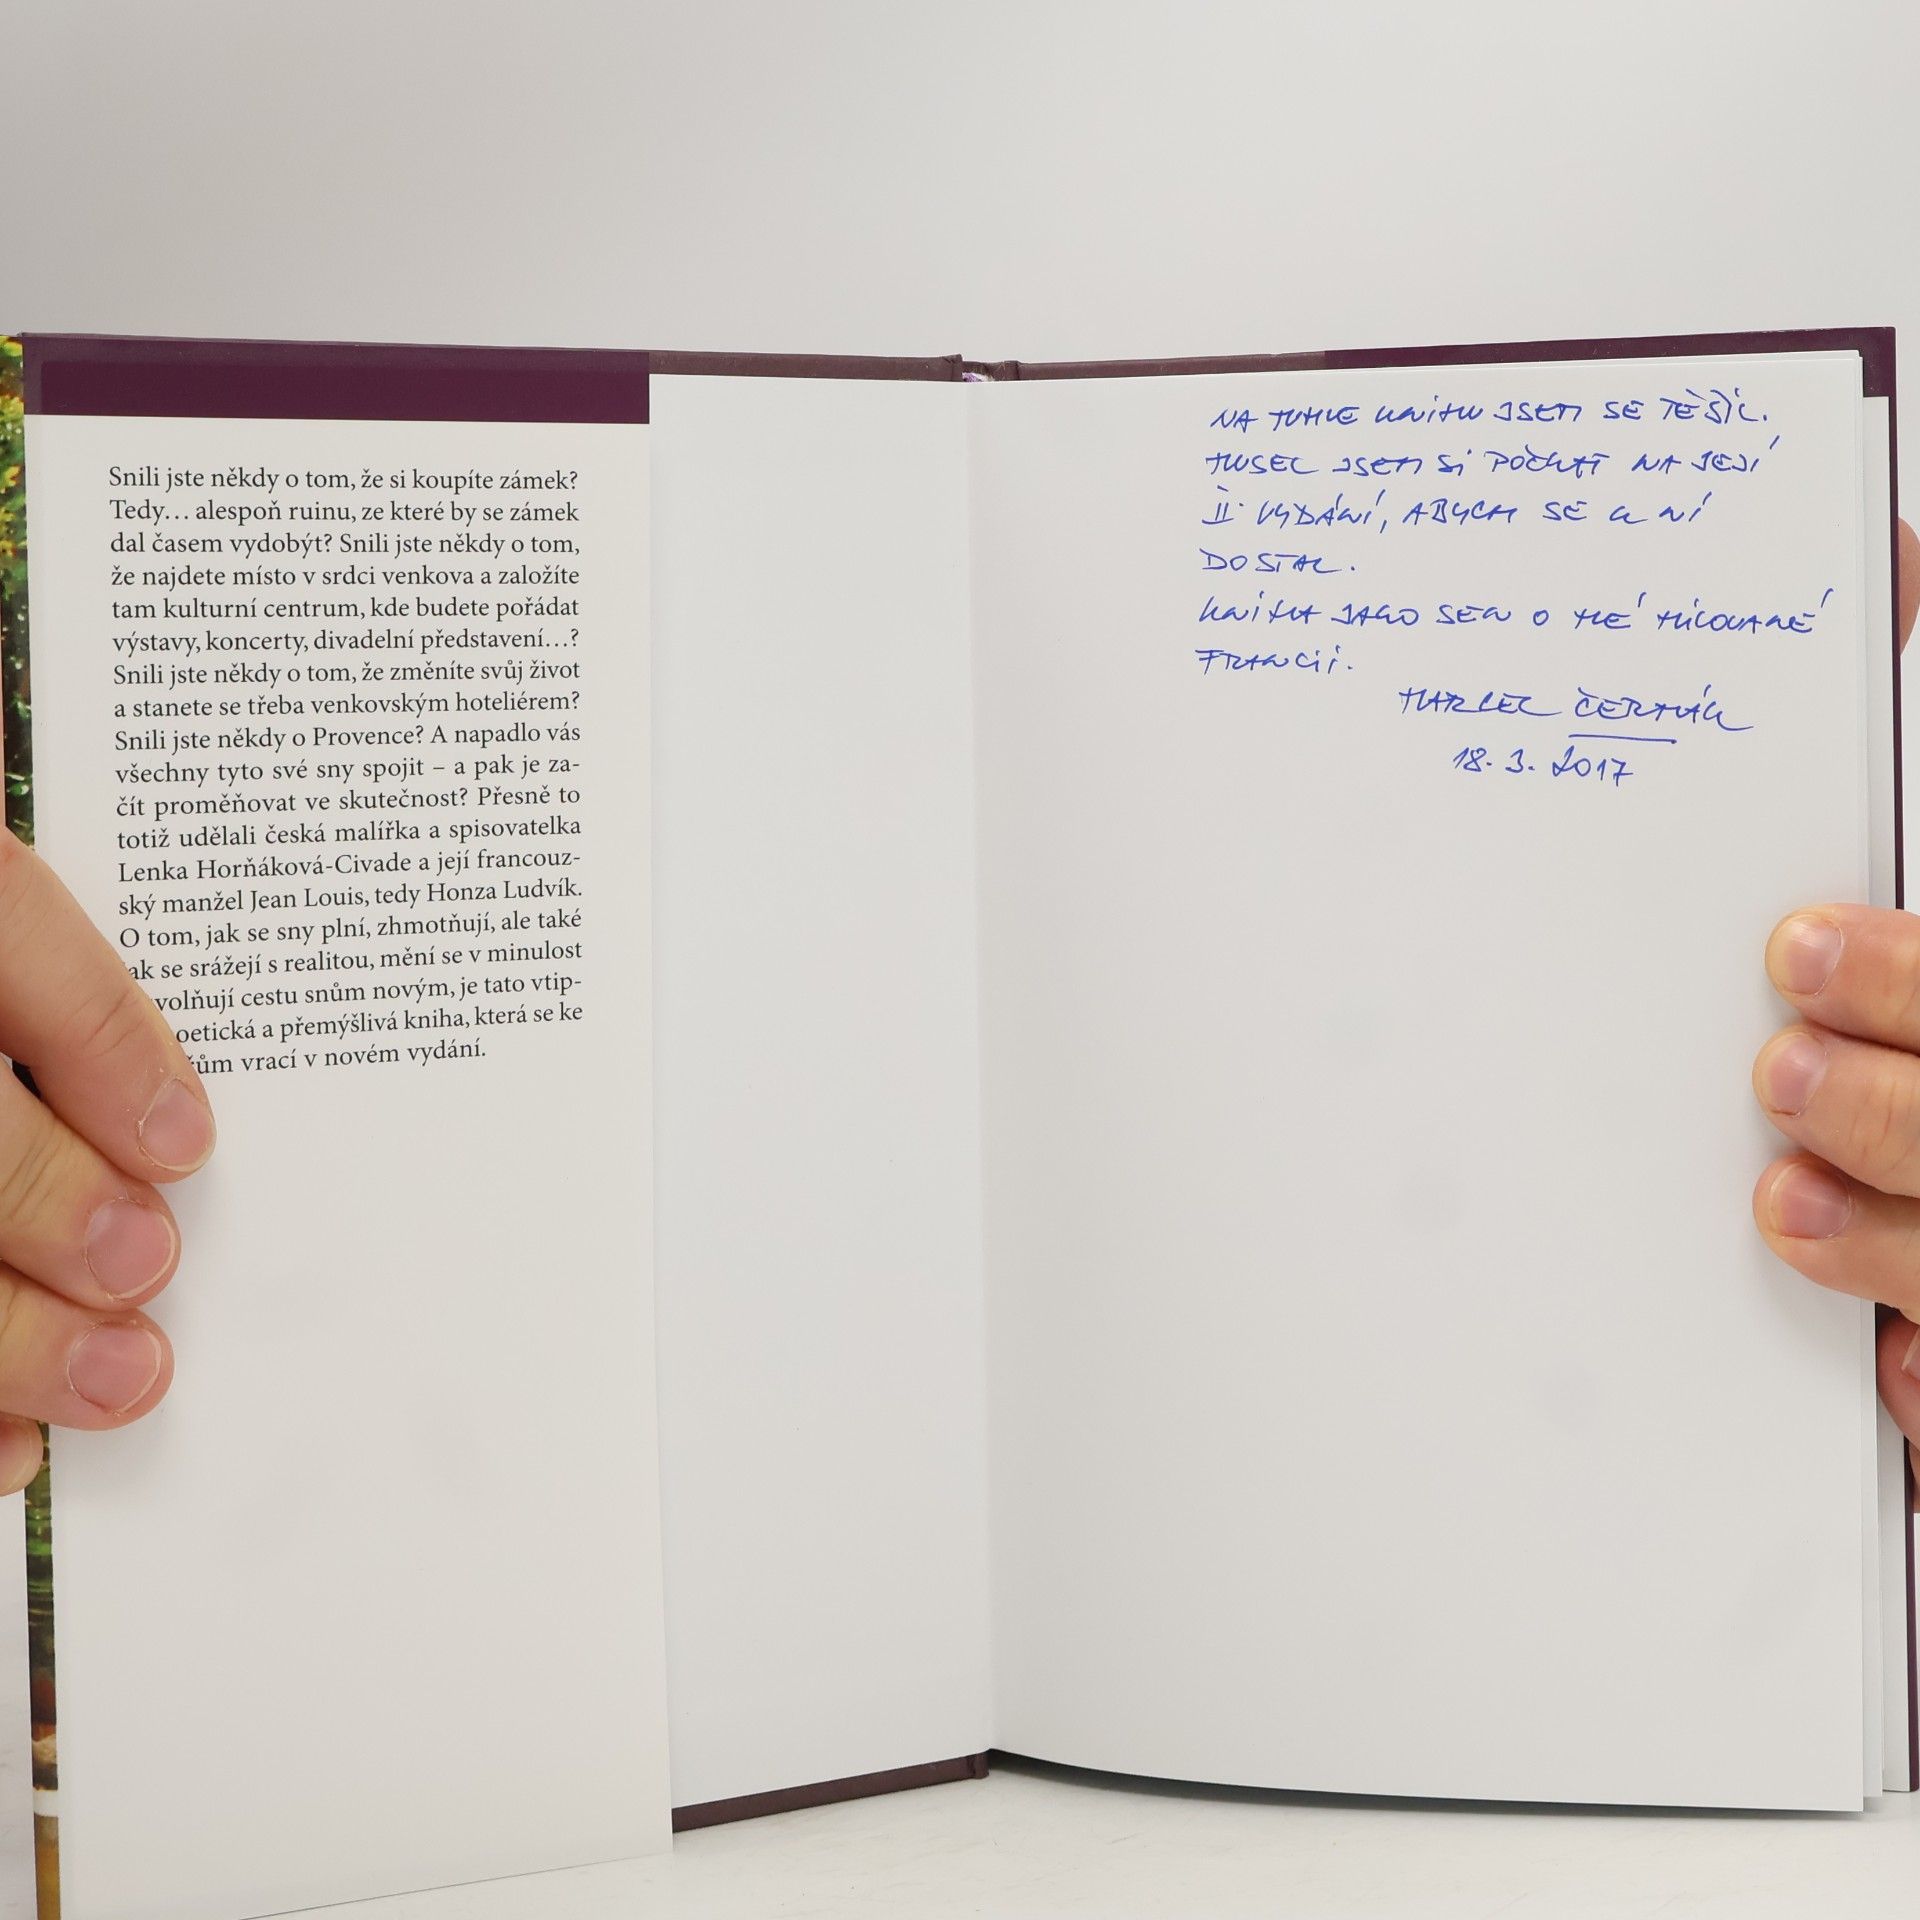 Snili jste někdy o tom, že si koupíte zámek?
Tedy… alespoň ruinu, ze které by se zámek
dal časem vydobýt? Snili jste někdy o tom,
že najdete místo v srdci venkova a založíte
tam kulturní centrum, kde budete pořádat
výstavy, koncerty, divadelní představení…?
Snili jste někdy o tom, že změníte svůj život
a stanete se třeba venkovským hoteliérem?
Snili jste někdy o Provence? A napadlo vás
všechny tyto své sny spojit – a pak je za-
čít proměňovat ve skutečnost? Přesně to
totiž udělali česká malířka a spisovatelka
Lenka Horňáková-Civade a její francouz-
ský manžel Jean Louis, tedy Honza Ludvík.
O tom, jak se sny plní, zhmotňují, ale také
ak se srážejí s realitou, mění se v minulost
volňují cestu snům novým, je tato vtip-
oetická a přemýšlivá kniha, která se ke
ům vrací v novém vydání.
NA TUHLE KNIHU JSEM SE TĚŠIL.
MUSEL JSEM SI POČKAT NA JEJÍ
II. VYDÁNÍ, ABYCH SE K NÍ
DOSTAL.
KNIHA JAKO SEN O MÉ MILOVANÉ
FRANCII.
MARCEL ČERMÁK
18. 3. 2017